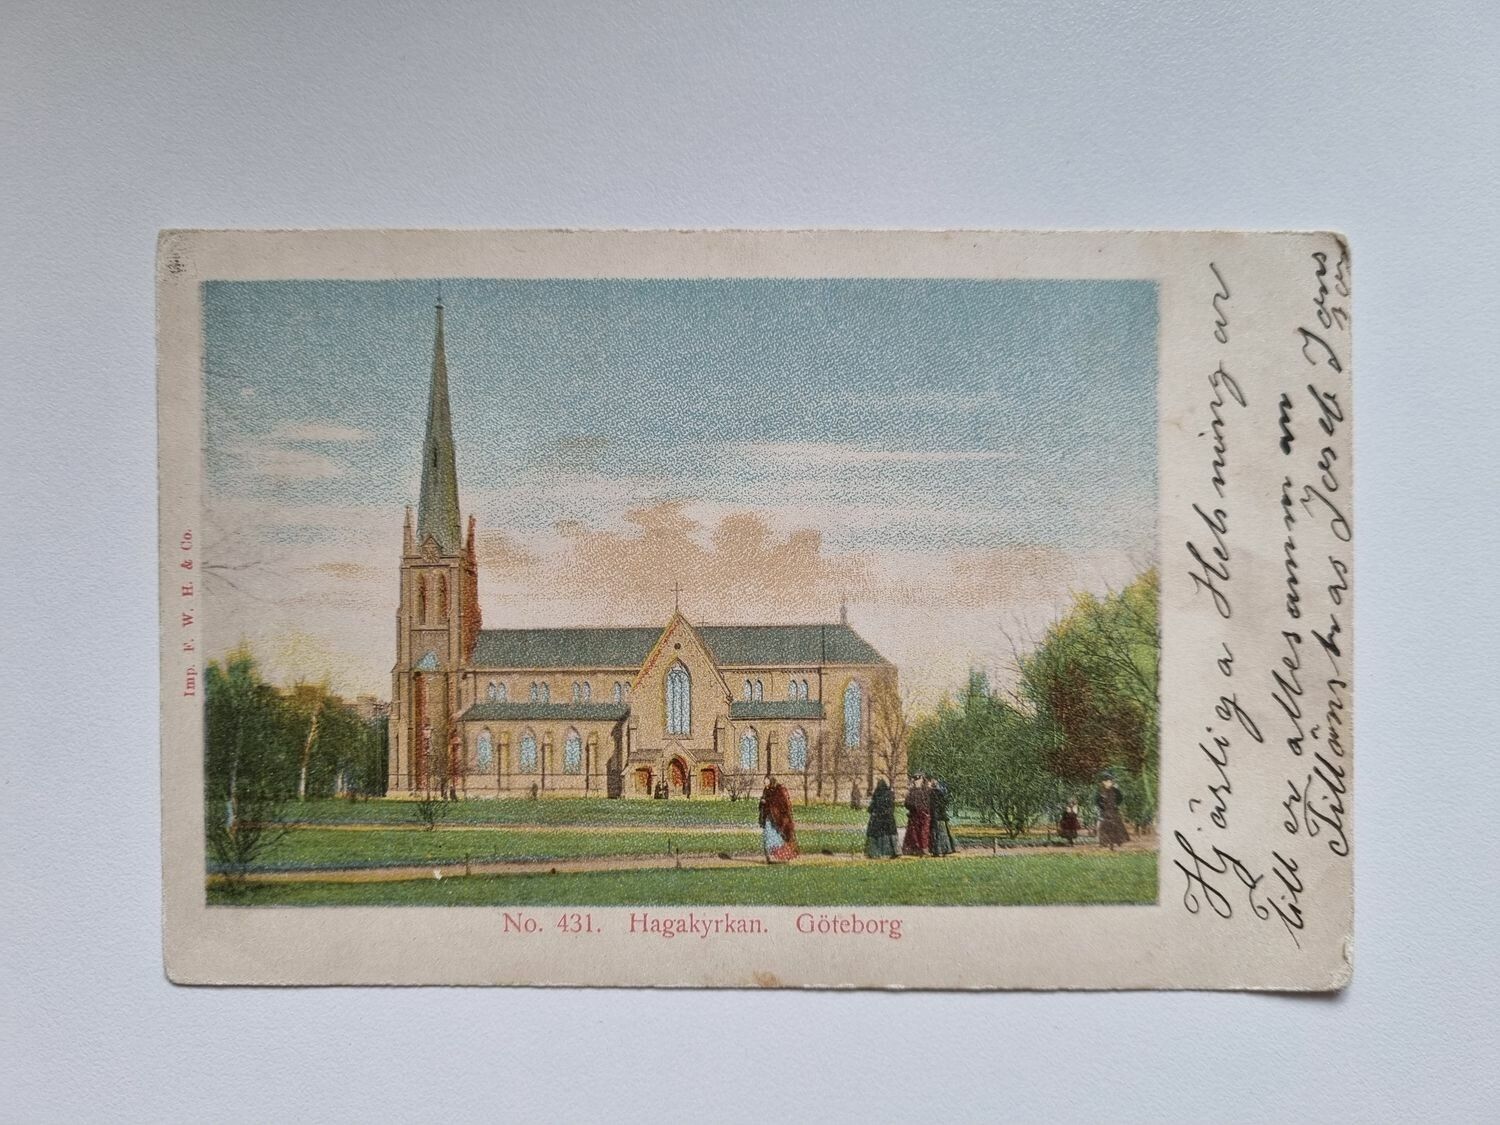 Imp. F. W. H. & Co.
No. 431. Hagakyrkan. Göteborg
Hjärtliga Helsningar
till er allesamman
Tillönskas Josef Jons
son